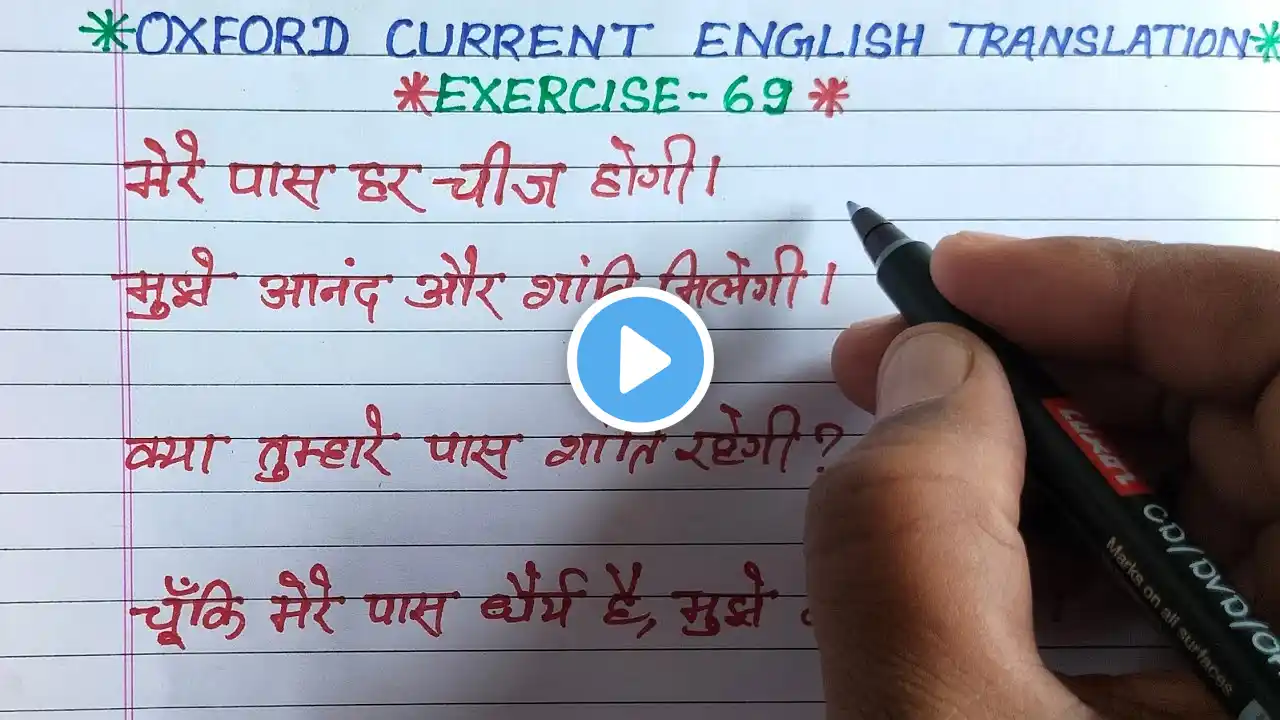 *OXFORD CURRENT ENGLISH TRANSLATION*
*EXERCISE-69*
मेरे पास हर चीज होगी।
मुझे आनंद और शांति मिलेंगी।
क्या तुम्हारे पास शांति रहेगी?
चूँकि मेरे पास धैर्य है, मुझे
Luxor
CD/DVD/OH
Marks on all surfaces